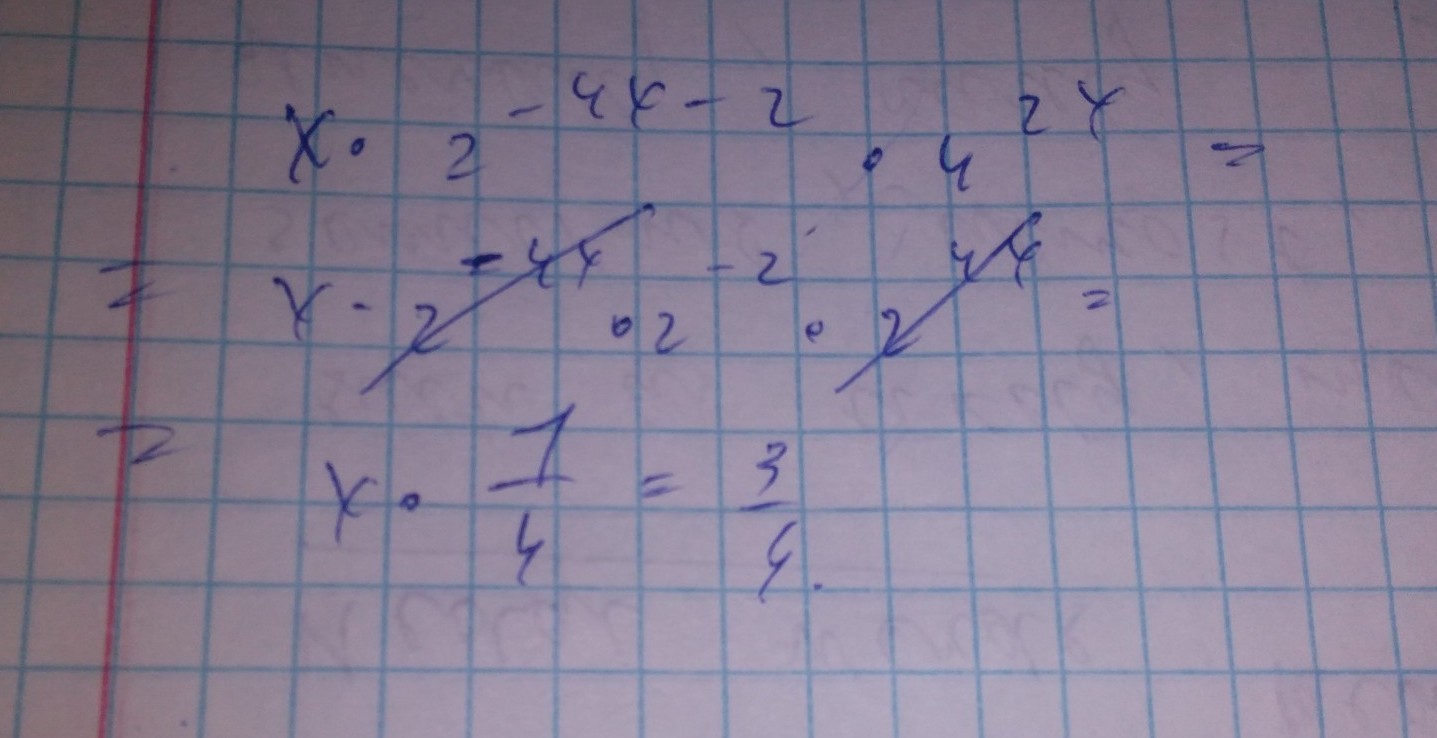 x · 2^{-4x-2} · 4^{2x} =
= x · 2^{-4x} · 2^{-2} · 2^{4x} =
= x · 1/4 = 3/4.